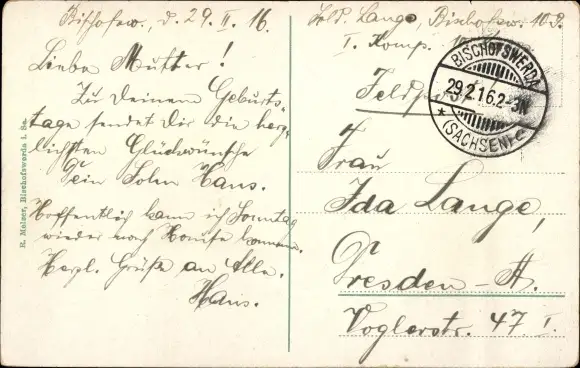 Bischofsw., d. 29. II. 16.
Liebe Mutter!
Zu Deinem Geburts-
tage sendet Dir die herz-
lichsten Glückwünsche
Dein Sohn Hans.
Hoffentlich kann ich Sonntag
wieder nach Hause kommen.
Herzl. Grüße an Alle.
Hans.
R. Melzer, Bischofswerda i. Sa.
Sold. Lange, Bischofsw.
I. Komp.
Feldpost
BISCHOFSWERDA
29.2.16.2-3N
* (SACHSEN)
Frau
Ida Lange,
Dresden-A.
Voglerstr. 47 I.